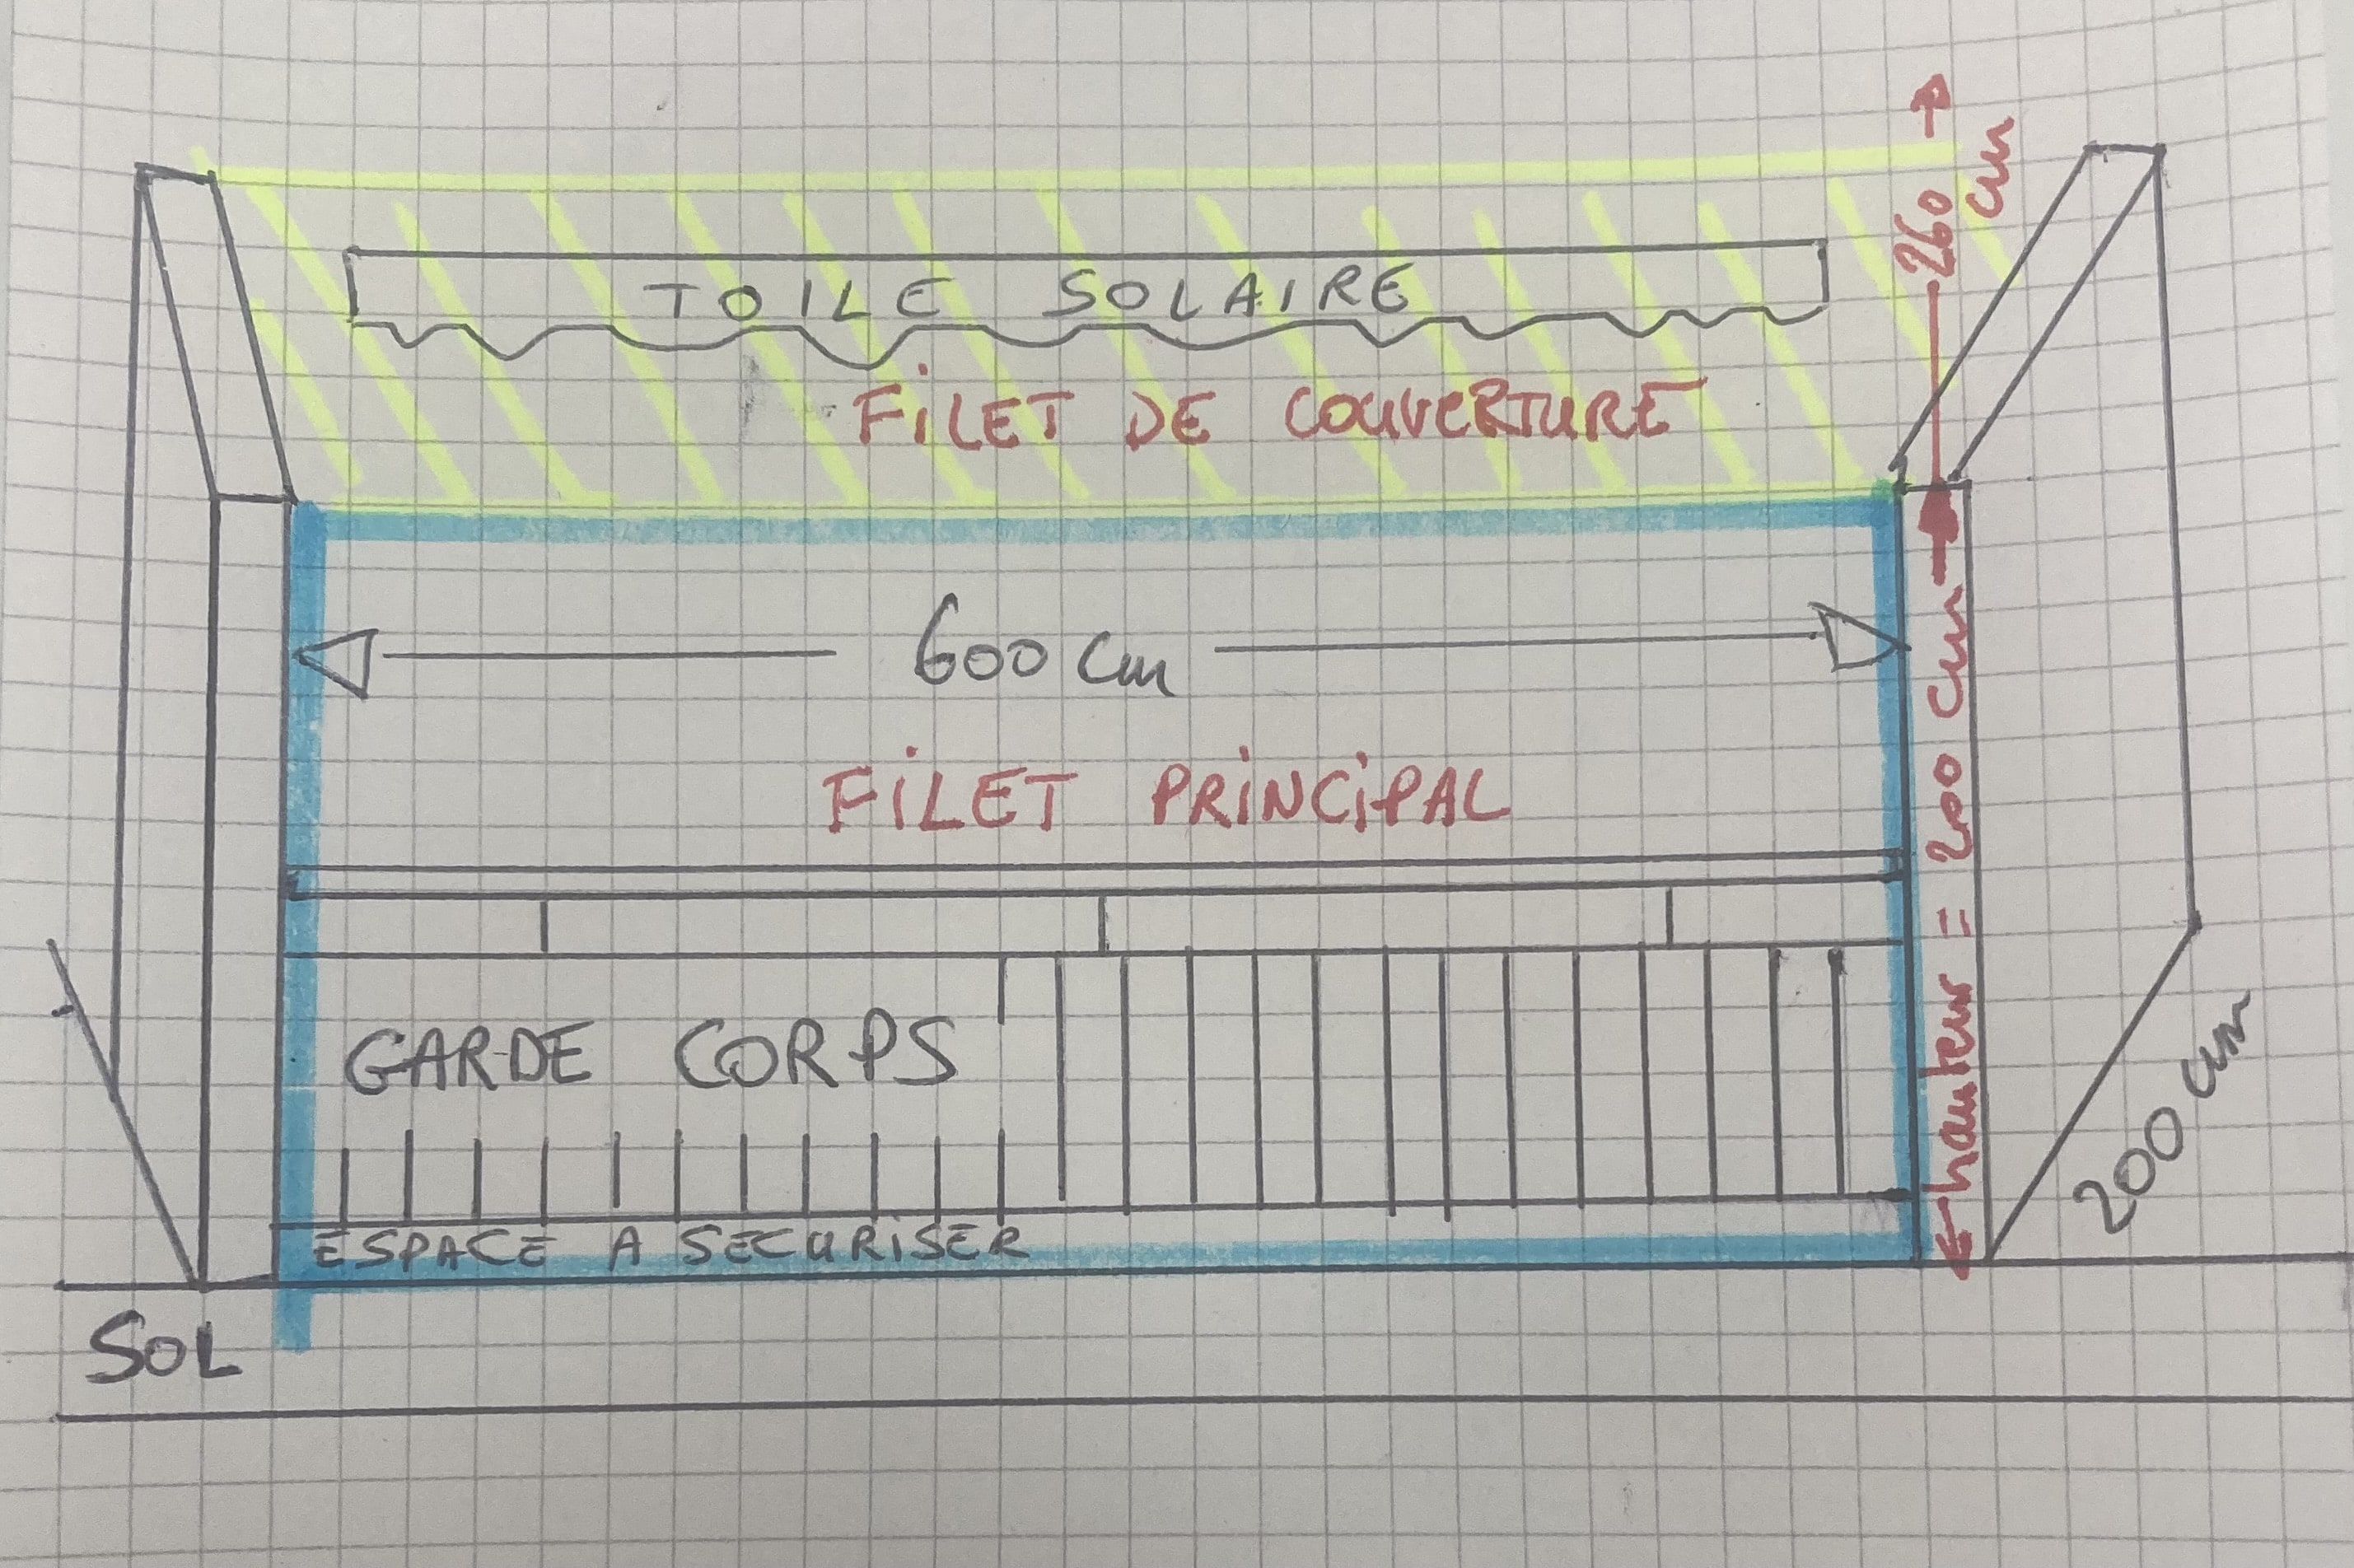 260 cm
TOILE SOLAIRE
FILET DE COUVERTURE
600 cm
FILET PRINCIPAL
hauteur = 200 cm
GARDE CORPS
200 cm
ESPACE A SECURISER
SOL